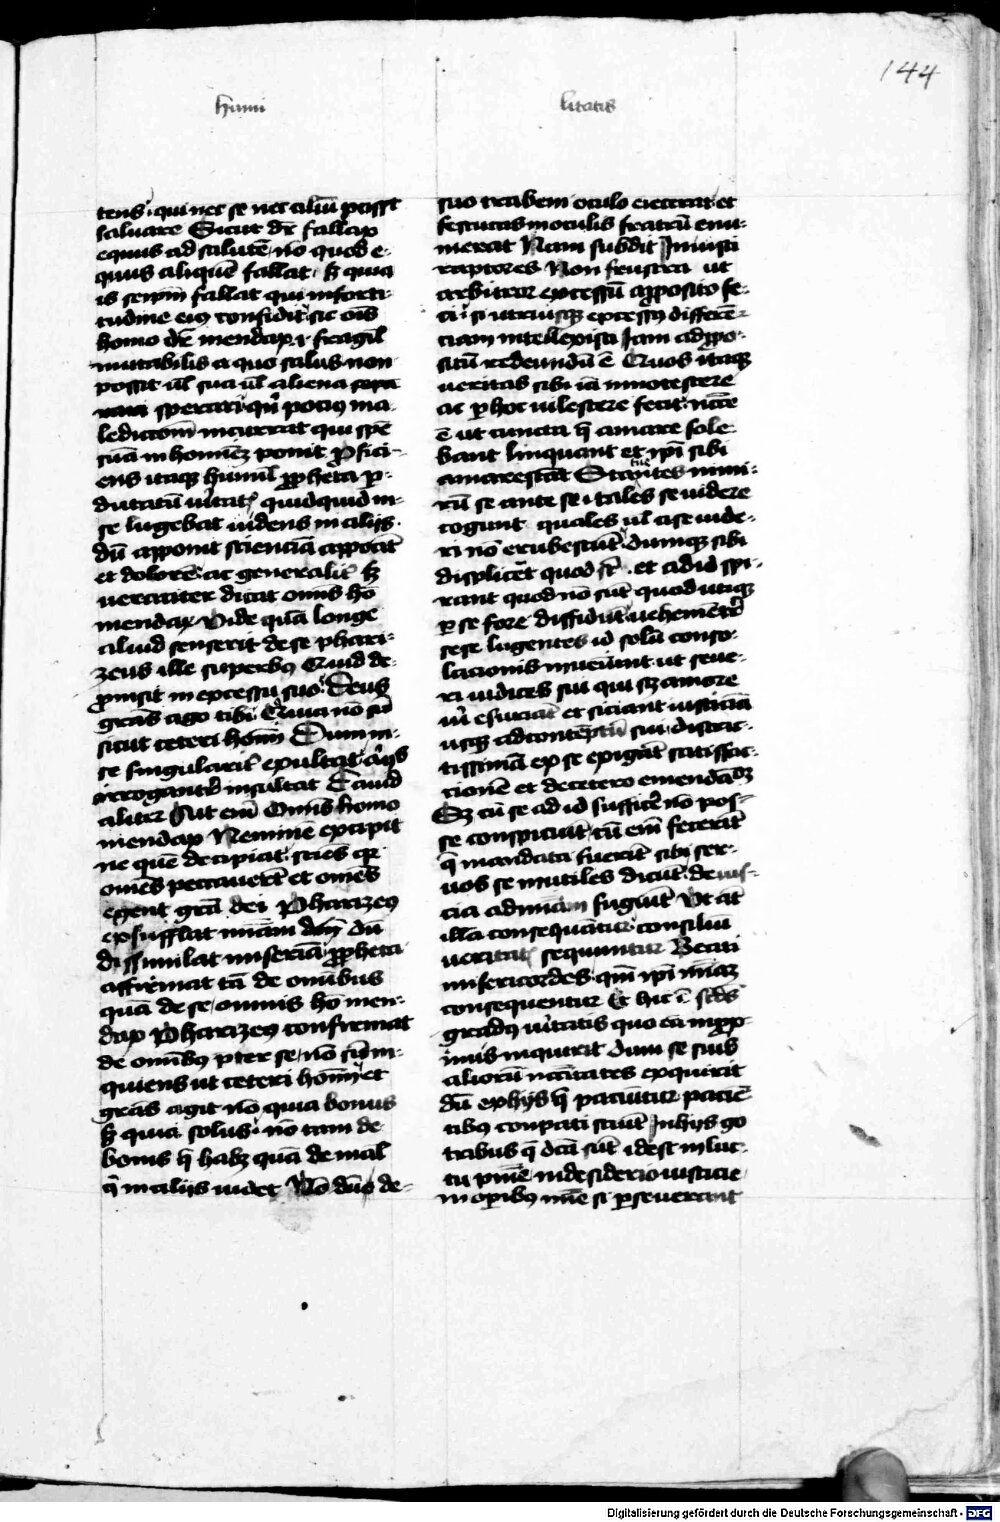 144
humi
litatis
tens · qui nec se nec aliū possit
saluare Sicut dr̄ fallax
equus ad salutē · nō quod e-
quus aliquē fallat · sꝫ quia
is seip̄m fallat qui in forti-
tudine eiꝰ confidit · sic oīs
homo dr̄ mendax · i · fragil̄
mutabilis a quo salus non
possit ul̄ sua ul̄ aliena
sperari · qn̄ pociꝰ ma-
ledictōm incurrat qui spē
suā in hominēꝫ ponit Profici-
ens itaqꝫ humil̄ ꝓpheta p̄
ducatū ūitatꝭ quidquid in
se lugebat uidens in aliis ·
dū apponit scienciā apponit
et dolorē · ac generalitꝭ sꝫ
ueraciter dicat omīs hō
mendax Vide quā longe
aliud senserit de se phari-
zeus ille superbꝰ Quid de-
prōmsit in excessu suo Deus
grās ago tibi Quia nō sū
sicut ceteri hoīm Dum in
se singularitꝭ exultat · aliis
arroganter̄ insultat Dauid
aliter Ait em̄ Omīs homo
mendax Neminē excipit
ne quē decipiat · sciēs qꝛ
omēs peccauerūt et omēs
egent grā dei Pharizeꝰ
exsufflat mīam dei dū
dissimilat miseriā ꝓpheta
affirmat tā de omībus
quā de se · omnis hō men-
dax Pharizeꝰ confirmat
de omībꝰ pter se · nō sum in-
quiens ut ceteri hoīm · et
grās agit nō quia bonus
sꝫ quia solus · nō tam de
bonis q̄ habꝫ quā de mal̄
q̄ in aliis uidet Nō dūo de-
suo trabem oculo eiecerat · et
festucas in oculis fratrū enu-
merat Nam subdit Iniusti
raptores Non frustra ut
arbitror excessū a ꝓposito fe-
ci · si utriusqꝫ excessꝰ differē-
ciam intellexisti Iam ad ꝓpo-
situ redeundū ē Quos itaqꝫ
ueritas sibi iā innotescere
ac p̱ hoc uilescere fecit · ncc̄e
ē ut cuncta q̄ amare sole-
bant linquant et ip̄i sibi
amarescāt Statuētes nimi-
rū se ante se · tales se uidere
cogunt quales ul̄ a se uide-
ri nō erubescūt Dumqꝫ sibi
displicēt quod sūt · et ad id spi-
rant quod nō sūt quod utiqꝫ
p̱ se fore diffidūt · uehemēter̄
sese lugentes id solū conso-
lacionis inueniunt · ut seue-
ri iudices sui qui sꝫ amore
ūi esuriāt et siciant iusticiā
usqꝫ ad contēptū sui · distric-
tissimā ex se exigūt satisfac-
cionē et de cetero emendac̄oꝫ
Sꝫ cū se ad id sufficē nō pos-
se conspiciūt · cū em̄ fecerīt
q̄ mandata fuerīt sibi ser-
uos se inutiles dicūt · de ius-
ticia ad mīam fugiūt Vt aūt
illā consequātur consiliū
ueritatꝭ sequuntur Beati
misericordes · qm̄ ip̄i mīam
consequentur Et hic ē scd̄s
gradꝰ ūitatis quo eā in ꝓx-
imis inquirūt · dum se suis
aliorū nc̄citates exquirūt
dū ex hijs q̄ paciūtur paciē-
tibꝰ conpati sciūt In hijs go
tribus q̄ dcā sūt · idest in luc-
tu p̄nie · in desiderio iusticie
in op̄ibꝰ mīe si p̱seuerant
Digitalisierung gefördert durch die Deutsche Forschungsgemeinschaft - DFG